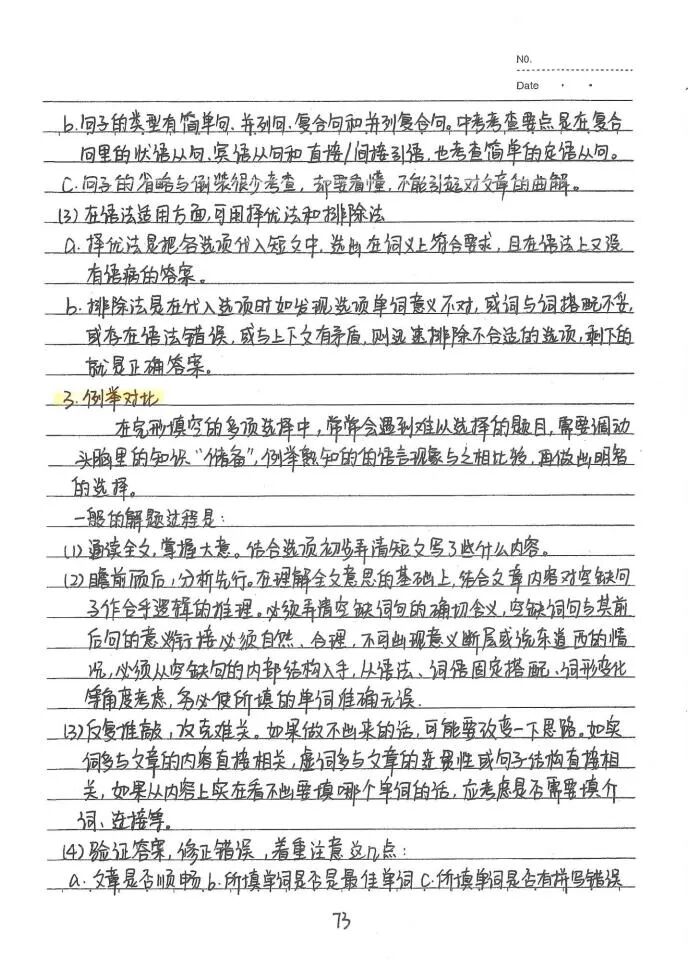 NO.
Date
b. 句子的类型有简单句、并列句、复合句和并列复合句。中考考查要点是在复合
句里的状语从句、宾语从句和直接/间接引语,也考查简单的定语从句。
C. 句子的省略与倒装很少考查, 却要看懂, 不能引起对文章的曲解。
(3) 在语法适用方面,可用择优法和排除法
a. 择优法是把各选项代入短文中, 选出在词义上符合要求, 且在语法上又没
有语病的答案。
b. 排除法是在代入选项时如发现选项单词意义不对, 或词与词搭配不妥,
或存在语法错误, 或与上下文有矛盾, 则迅速排除不合适的选项, 剩下的
就是正确答案。
3. 例举对比
在完形填空的多项选择中, 常常会遇到难以选择的题目, 需要调动
头脑里的知识“储备”, 例举熟知的的语言现象与之相比较, 再做出明智
的选择。
一般的解题过程是:
(1) 通读全文, 掌握大意。结合选项初步弄清短文写了些什么内容。
(2) 瞻前顾后, 分析先行。在理解全文意思的基础上, 结合文章内容对空缺句
子作合乎逻辑的推理。必须弄清空缺词句的确切含义, 空缺词句与其前
后句的意义衔接必须自然、合理, 不可出现意义断层或说东道西的情
况, 必须从空缺句的内部结构入手, 从语法、词语固定搭配、词形变化
等角度考虑, 务必使所填的单词准确无误.
(3) 反复推敲, 攻克难关。如果做不出来的话, 可能要改变一下思路。如实
词多与文章的内容直接相关, 虚词多与文章的连贯性或句子结构直接相
关, 如果从内容上实在看不出要填哪个单词的话, 应考虑是否需要填介
词、连接等。
(4) 验证答案, 修正错误, 着重注意这几点:
a. 文章是否顺畅 b. 所填单词是否是最佳单词 C. 所填单词是否有拼写错误
73